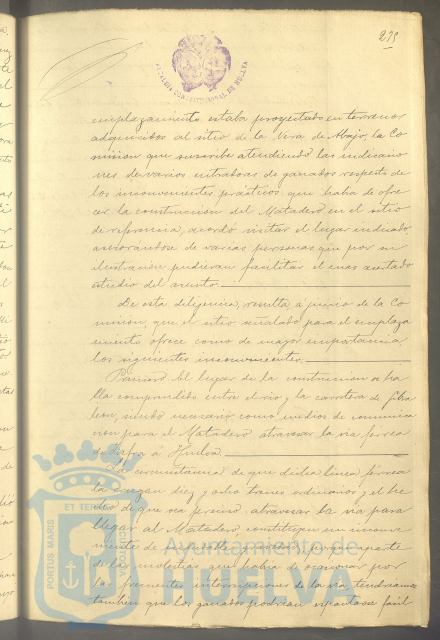 275
ALCALDIA CONSTITUCIONAL DE HUELVA
emplazamiento estaba proyectado en terrenos
adquiridos al sitio de la Vera de Abajo, la Co
mision que suscribe atendiendo las indicacio
nes de varios entradores de ganados respecto de
los inconvenientes prácticos que habia de ofre
cer la construccion del Matadero en el sitio
de referencia, acordó visitar el lugar indicado
asesorándose de varias personas que por su
ilustracion pudieran facilitar el mas acertado
estudio del asunto.
De esta diligencia, resulta á juicio de la Co
mision, que el sitio señalado para el emplaza
miento ofrece como de mayor importancia
los siguientes inconvenientes.
Primero. El lugar de la construccion se ha
lla comprendido entre el rio y la carretera de Gibra
leon, siendo necesario como medios de comunica
cion para el Matadero atravesar la via ferrea
de Zafra á Huelva.
La circunstancia de que dicha linea ferrea
la crucen diez y ocho trenes ordinarios y el he
cho de que sea preciso atravesar la via para
llegar al Matadero constituyen un inconve
niente de gravedad, porque aparte
de las molestias que habia de ocasionar por
las frecuentes interrupciones de la via tendriamos
tambien que los ganados podrian espantarse facil
PORTUS MARIS ET TERRAE CUSTODIA
Ayuntamiento de
HUELVA